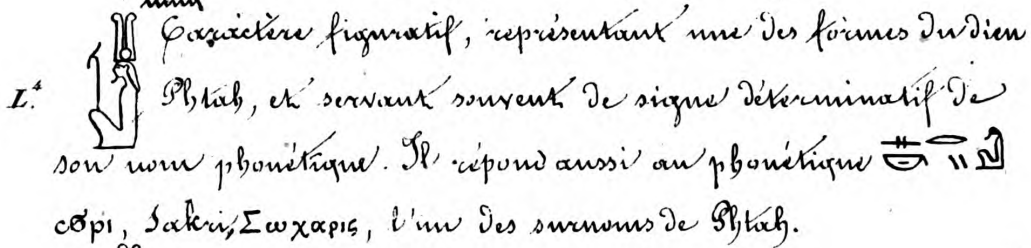 Caractère figuratif, représentant une des formes du dieu
L.⁴ Phtah, et servant souvent de signe déterminatif de
son nom phonétique. Il répond aussi au phonétique
Sakri, Σωχαρις, l'un des surnoms de Phtah.